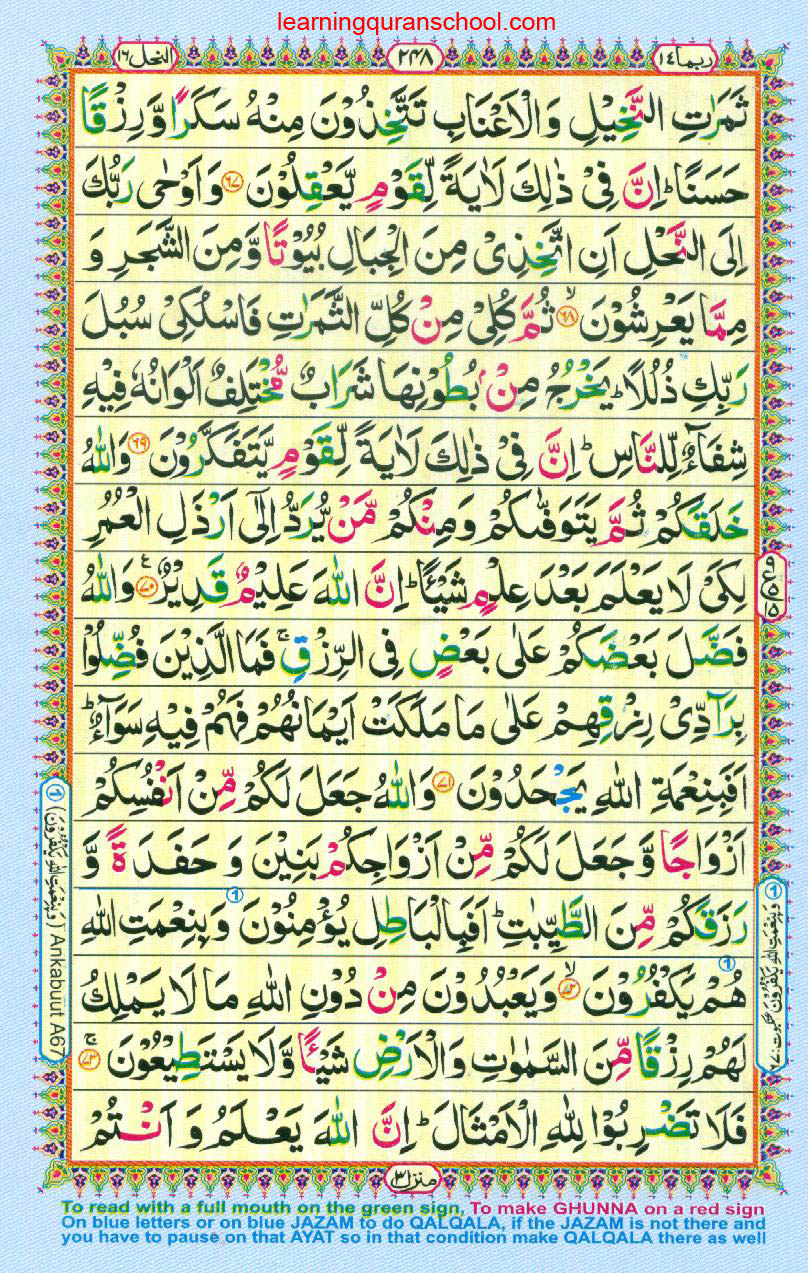 learningquranschool.com
ربما ١٤
٢٤٨
النحل ١٦
ثَمَرٰتِ النَّخِیْلِ وَالْاَعْنَابِ تَتَّخِذُوْنَ مِنْهُ سَكَرًا وَّ رِزْقًا
حَسَنًا ؕ اِنَّ فِیْ ذٰلِكَ لَاٰیَةً لِّقَوْمٍ یَّعْقِلُوْنَ ﴿۶۷﴾ وَ اَوْحٰی رَبُّكَ
اِلَی النَّحْلِ اَنِ اتَّخِذِیْ مِنَ الْجِبَالِ بُیُوْتًا وَّ مِنَ الشَّجَرِ وَ
مِمَّا یَعْرِشُوْنَ ﴿ۙ۶۸﴾ ثُمَّ كُلِیْ مِنْ كُلِّ الثَّمَرٰتِ فَاسْلُكِیْ سُبُلَ
رَبِّكِ ذُلُلًا ؕ یَخْرُجُ مِنْۢ بُطُوْنِهَا شَرَابٌ مُّخْتَلِفٌ اَلْوَانُهٗ فِیْهِ
شِفَآءٌ لِّلنَّاسِ ؕ اِنَّ فِیْ ذٰلِكَ لَاٰیَةً لِّقَوْمٍ یَّتَفَكَّرُوْنَ ﴿۶۹﴾ وَ اللّٰهُ
خَلَقَكُمْ ثُمَّ یَتَوَفّٰىكُمْ وَ مِنْكُمْ مَّنْ یُّرَدُّ اِلٰۤی اَرْذَلِ الْعُمُرِ
لِكَیْ لَا یَعْلَمَ بَعْدَ عِلْمٍ شَیْـًٔا ؕ اِنَّ اللّٰهَ عَلِیْمٌ قَدِیْرٌ ﴿۷۰﴾ۧ وَ اللّٰهُ
فَضَّلَ بَعْضَكُمْ عَلٰی بَعْضٍ فِی الرِّزْقِ ۚ فَمَا الَّذِیْنَ فُضِّلُوْا
بِرَآدِّیْ رِزْقِهِمْ عَلٰی مَا مَلَكَتْ اَیْمَانُهُمْ فَهُمْ فِیْهِ سَوَآءٌ ؕ
اَفَبِنِعْمَةِ اللّٰهِ یَجْحَدُوْنَ ﴿۷۱﴾ وَ اللّٰهُ جَعَلَ لَكُمْ مِّنْ اَنْفُسِكُمْ
اَزْوَاجًا وَّ جَعَلَ لَكُمْ مِّنْ اَزْوَاجِكُمْ بَنِیْنَ وَ حَفَدَةً وَّ
رَزَقَكُمْ مِّنَ الطَّیِّبٰتِ ؕ اَفَبِالْبَاطِلِ یُؤْمِنُوْنَ وَ بِنِعْمَتِ اللّٰهِ
هُمْ یَكْفُرُوْنَ ﴿ۙ۷۲﴾ وَ یَعْبُدُوْنَ مِنْ دُوْنِ اللّٰهِ مَا لَا یَمْلِكُ
لَهُمْ رِزْقًا مِّنَ السَّمٰوٰتِ وَ الْاَرْضِ شَیْـًٔا وَّ لَا یَسْتَطِیْعُوْنَ ﴿ۚ۷۳﴾
فَلَا تَضْرِبُوْا لِلّٰهِ الْاَمْثَالَ ؕ اِنَّ اللّٰهَ یَعْلَمُ وَ اَنْتُمْ
منزل ٣
1 (وَبِنِعْمَةِ اللّٰهِ یَكْفُرُوْنَ) Ankabuut A67
1 وَبِنِعْمَةِ اللّٰهِ یَكْفُرُوْنَ
To read with a full mouth on the green sign, To make GHUNNA on a red sign
On blue letters or on blue JAZAM to do QALQALA, if the JAZAM is not there and
you have to pause on that AYAT so in that condition make QALQALA there as well